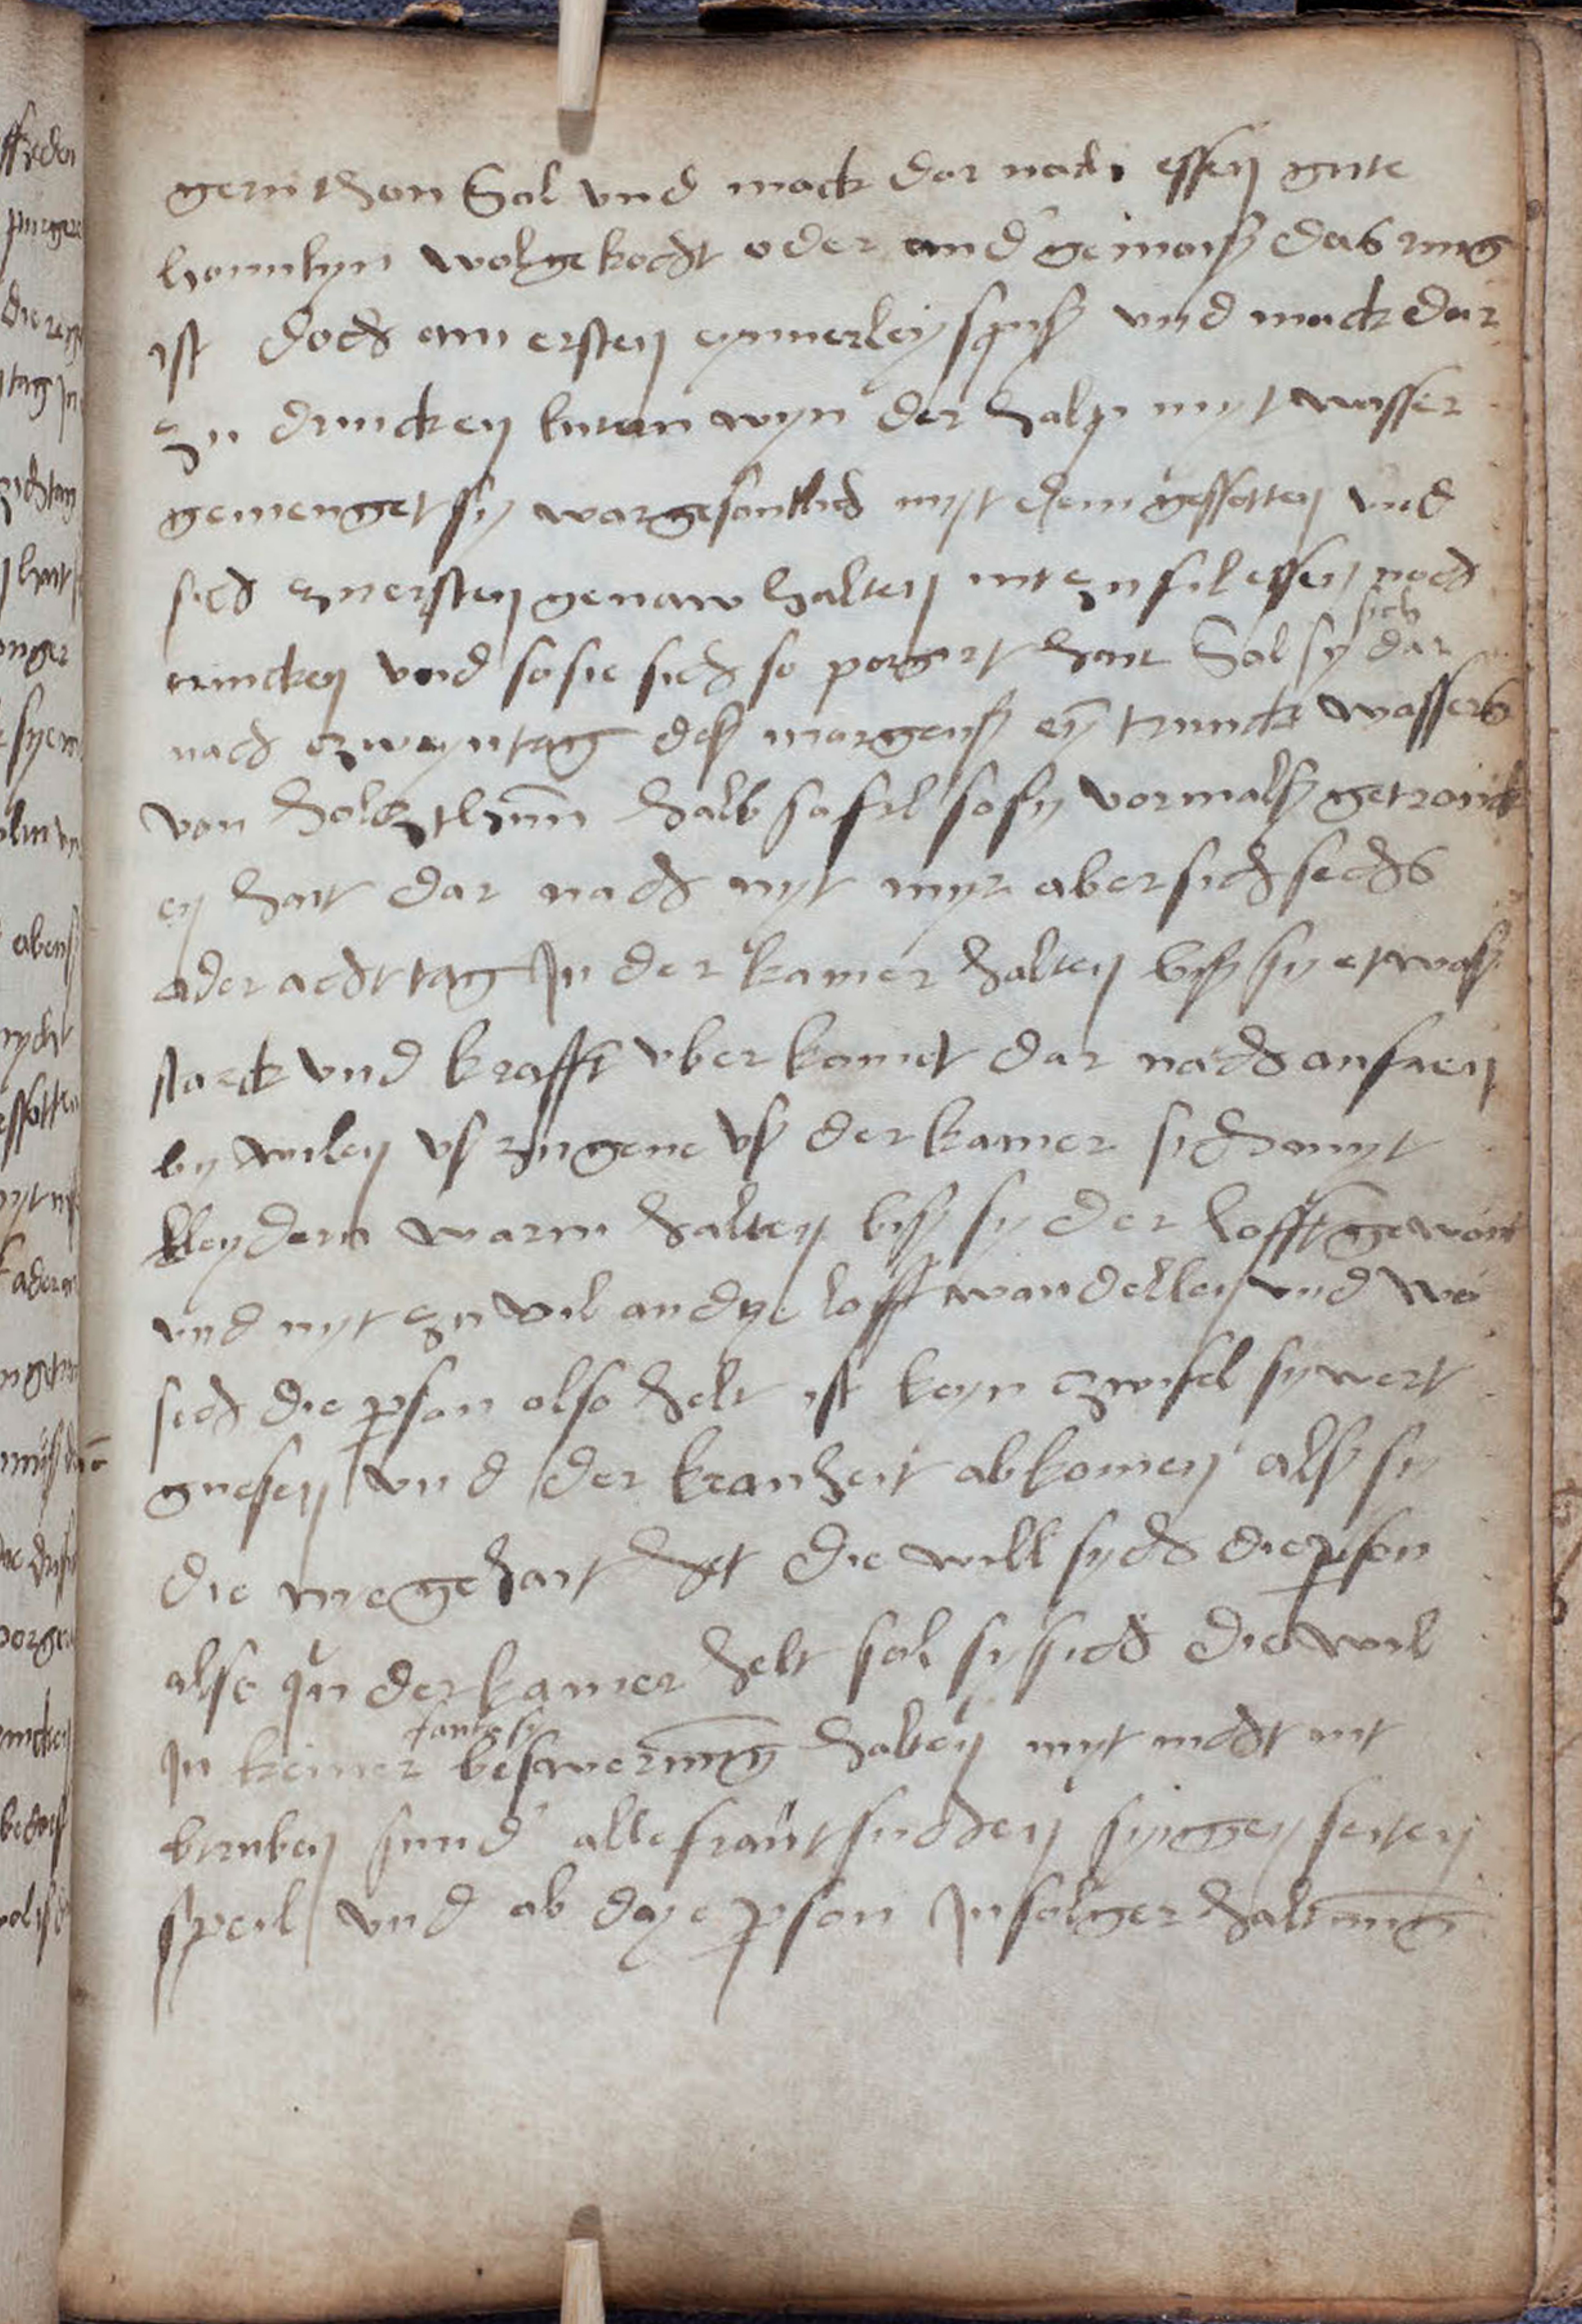 gern thon Sol vnd mack dar nach essen gute
hounlyn wolgekocht oder and gemoiß das ring
ist doch am ersten eynnerley spyß vnd mack dar
zu drincken lutern wyn der halp myt wasser
gemenget sy wor gesontlich myt dem gessotten vnd
sich zu ersten genaw halten nit zu fil essen noch
trincken vnd so sie sich so porgirt hait Sol sy sich dar
nach zweyn tag deß morgenß ey trunck wassers
von holtz thun halb so fil so sy vormalß getronck
en hait dar nach nyt myr aber sich sechs
oder acht tag In der kamer halten biß sy etwaß
starck vnd krafft vber komet dar nach anfaen
by wilen vß zu gene vß der kamer sich myt
kleydern warm halten biß sy der lofft gewont
vnd nyt zu vil an dye lofft wandellen vnd wo
sich die pson also helt ist keyn zwifel sy wert
gnesen vnd der kranheit abkomen alß sy
die nie gehait het die will sych die pson
also in der kamer helt sol sy sich die wil
In keiner fantasy beswerung halten myt nicht nit
bruben sund alle frait suchen syngen seiten
speil vnd ab dye pson In solger haltung